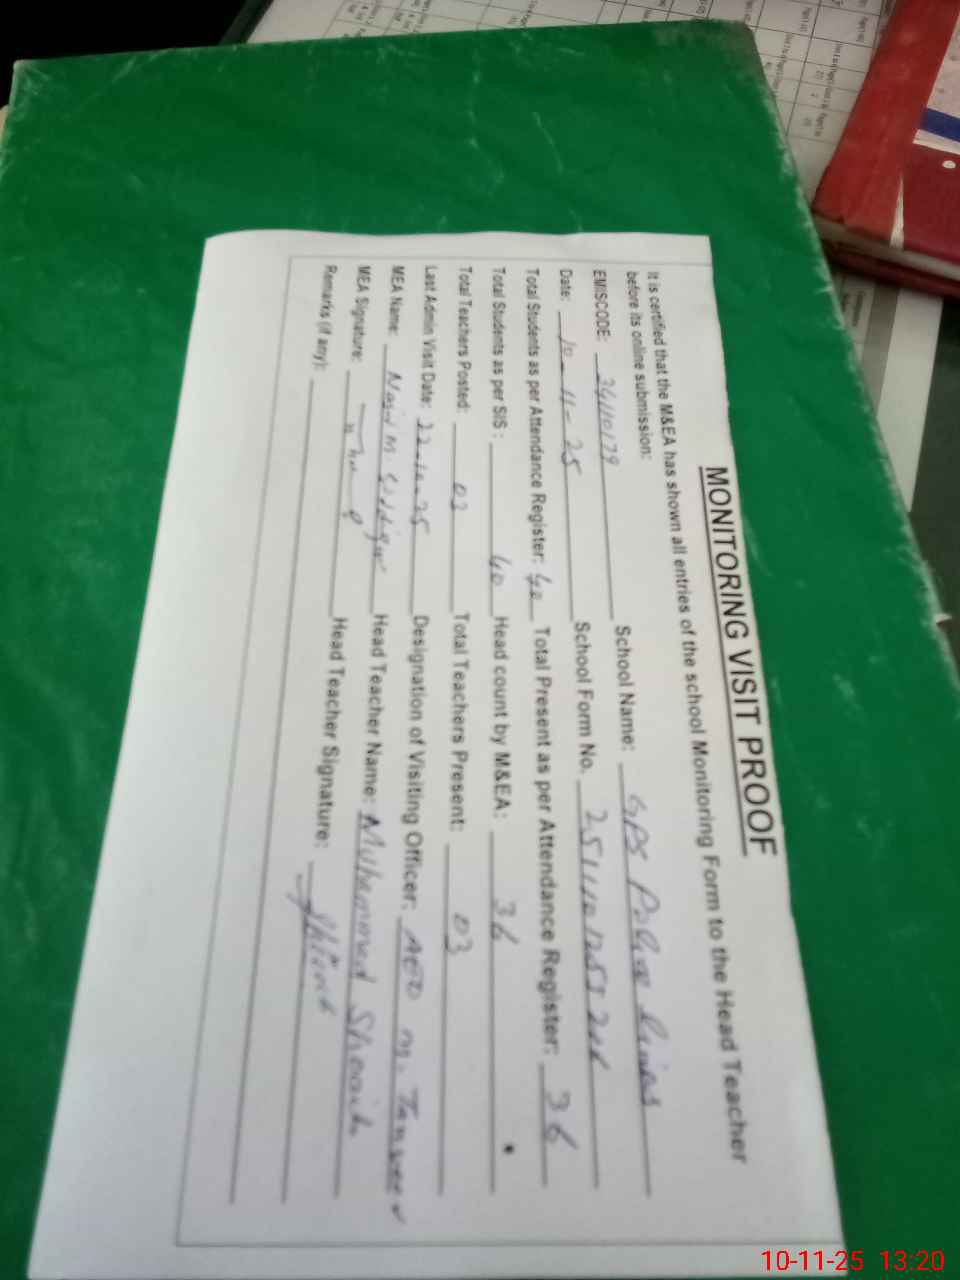 MONITORING VISIT PROOF
It is certified that the M&EA has shown all entries of the school Monitoring Form to the Head Teacher
before its online submission:
EMISCODE: 34110179 School Name: GPS Police Lines
Date: 10-11-25 School Form No.
Total Students as per Attendance Register: 40 Total Present as per Attendance Register: 36
Total Students as per SIS: 40 Head count by M&EA: 36
Total Teachers Posted: 03 Total Teachers Present: 03
Last Admin Visit Date: 22-10-25 Designation of Visiting Officer: AEO M. Tanveer
MEA Name: M. Head Teacher Name: Muhammad Shoaib
MEA Signature: Head Teacher Signature:
Remarks (if any):
10-11-25 13:20